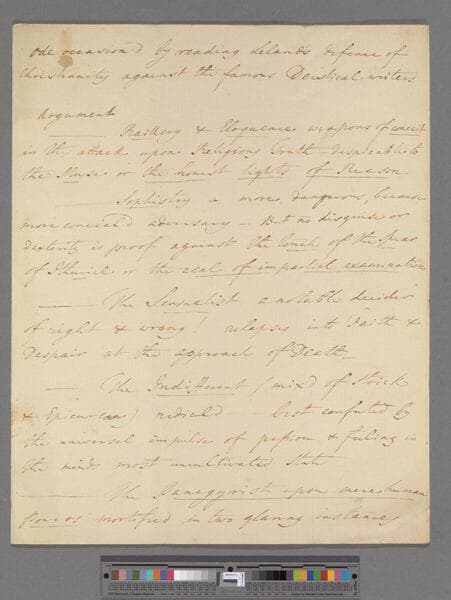 Ode occasion'd by reading Leland's defence of
Christianity against the famous Deistical writers.
Argument
Raillery & Eloquence weapons of conceit
in the attack upon Religious Truth despicable to
the Muse or the honest lights of Reason
Sophistry a more dangerous, because
more conceal'd adversary - But no disguise or
dexterity is proof against the touch of the spear
of Ithuriel or the zeal of impartial examination
The Sensualist a notable decider
of right & wrong! relapses into Faith &
Despair at the approach of Death.
The Indifferent (mix'd of Stoick
& Epicurean) ridicul'd best confuted by
the universal impulse of passion & feeling in
the minds most uncultivated State
The Panegyrist upon mere human
Powers mortified in two glaring instances